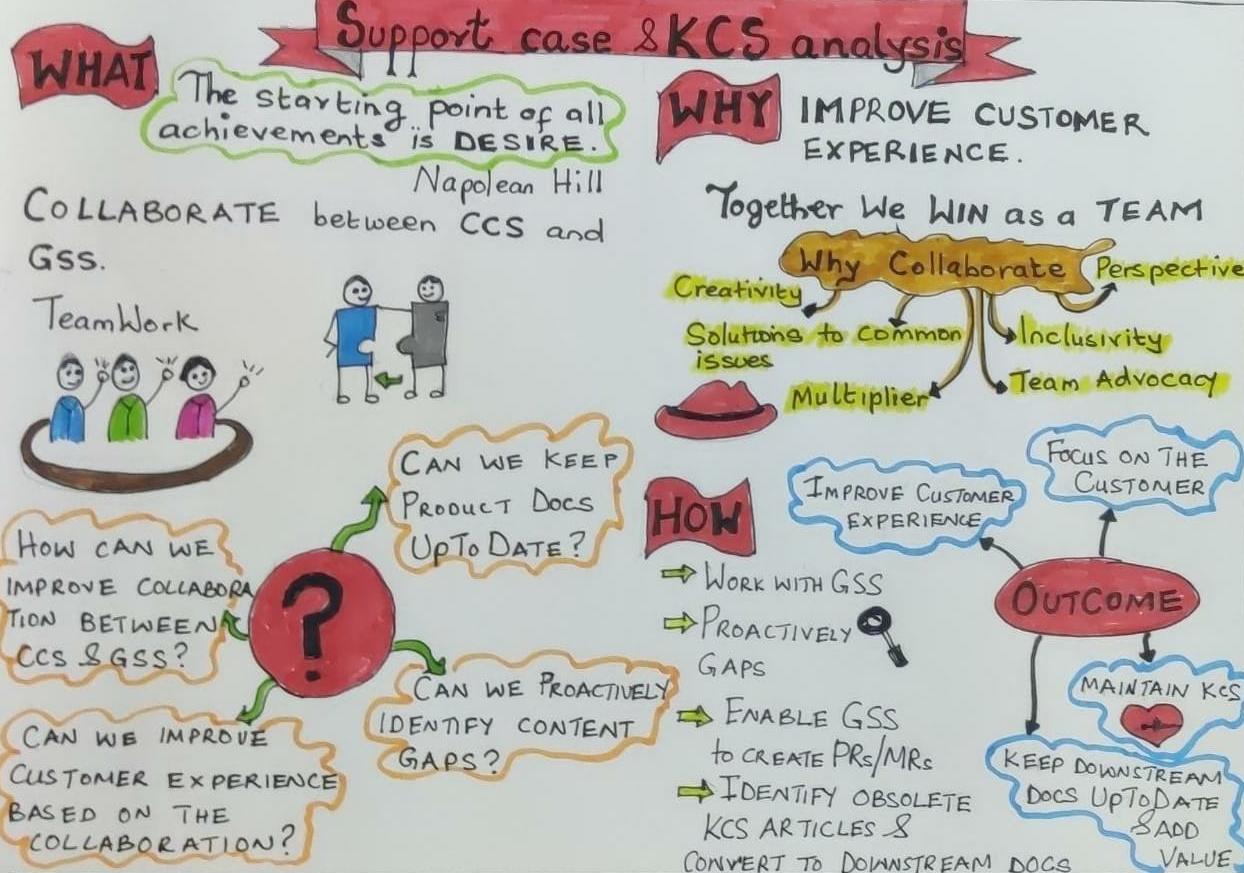 Support case & KCS analysis
WHAT
The starting point of all
achievements is DESIRE.
Napolean Hill
COLLABORATE between CCS and
GSS.
TeamWork
CAN WE KEEP
PRODUCT DOCS
UpTo DATE?
HOW CAN WE
IMPROVE COLLABORA
TION BETWEEN
CCS & GSS?
?
CAN WE PROACTIVELY
IDENTIFY CONTENT
GAPS?
CAN WE IMPROVE
CUSTOMER EXPERIENCE
BASED ON THE
COLLABORATION?
WHY
IMPROVE CUSTOMER
EXPERIENCE.
Together We WIN as a TEAM
Why Collaborate
Perspective
Creativity
Solutions to common
issues
Inclusivity
Multiplier
Team Advocacy
HOW
WORK WITH GSS
PROACTIVELY
GAPS
ENABLE GSS
to CREATE PRs/MRs
IDENTIFY OBSOLETE
KCS ARTICLES &
CONVERT TO DOWNSTREAM DOCS
IMPROVE CUSTOMER
EXPERIENCE
FOCUS ON THE
CUSTOMER
OUTCOME
MAINTAIN KCS
KEEP DOWNSTREAM
DOCS UpToDATE
& ADD
VALUE